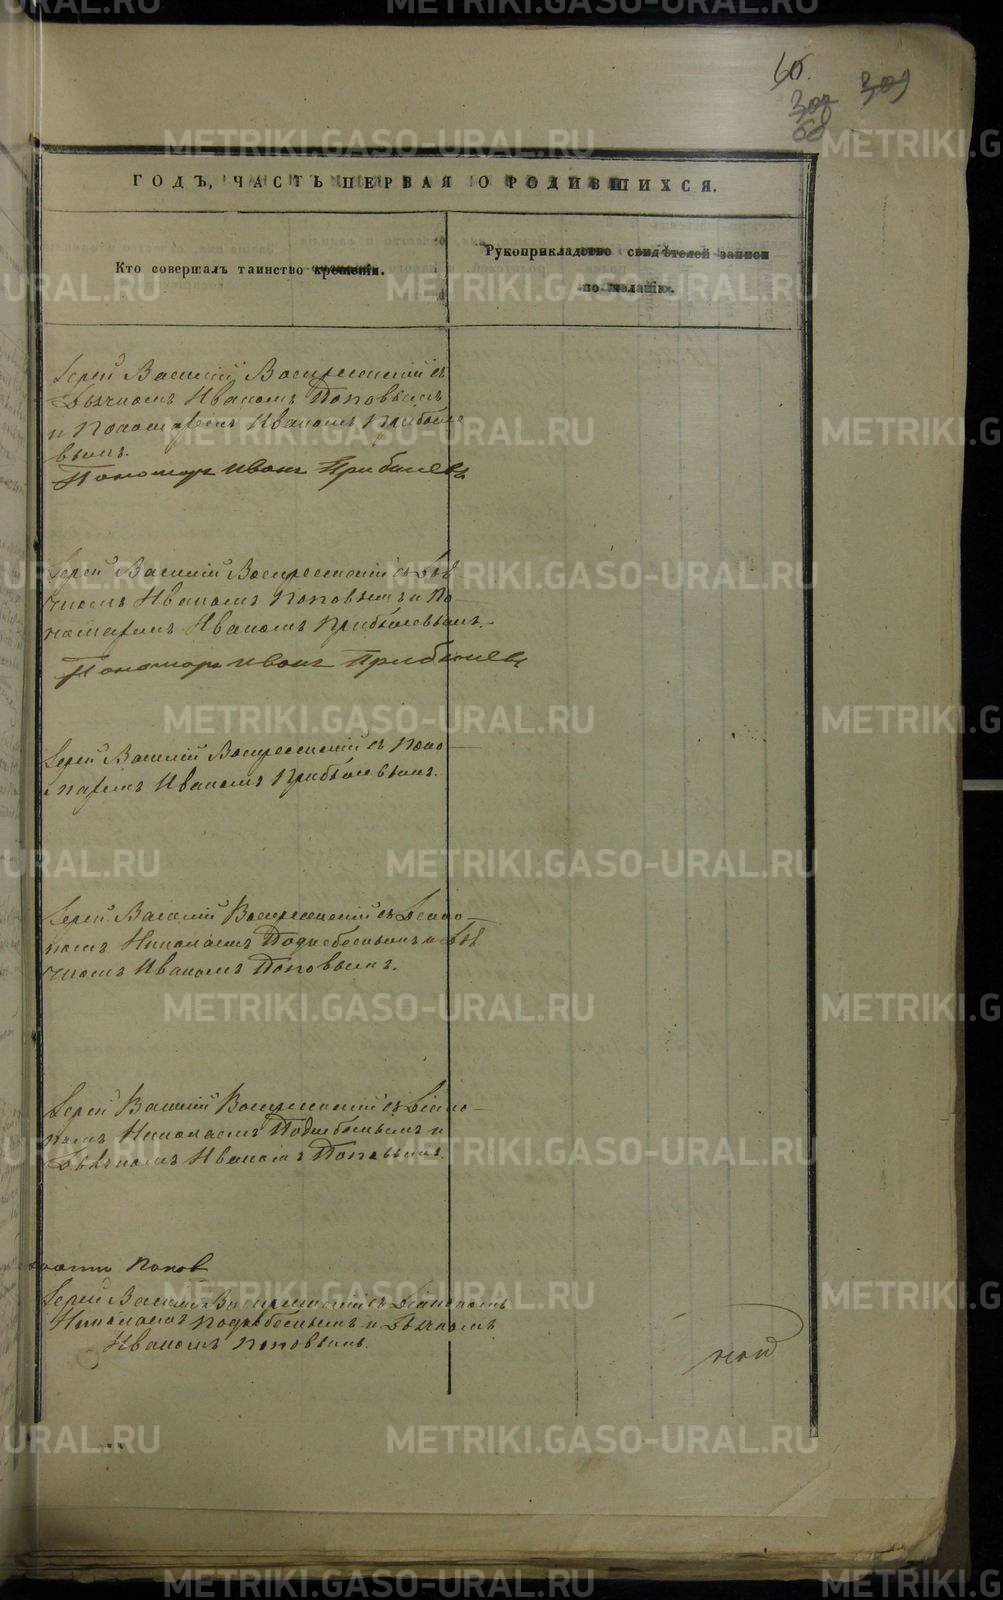 65.
302
309
68
ГОДЪ, ЧАСТЬ ПЕРВАЯ О РОДИВШИХСЯ.
Кто совершалъ таинство крещенія.
Рукоприкладство свидѣтелей записи
по желанію.
Іерей Василій Воскресенскій съ
Дьячкомъ Иваномъ Поповымъ
и Пономаремъ Иваномъ Прибыле
вымъ.
Пономарь Иванъ Прибылевъ
Іерей Василій Воскресенскій съ Дья
чкомъ Иваномъ Поповымъ и По-
номаремъ Иваномъ Прибылевымъ.
Пономарь Иванъ Прибылевъ
Іерей Василій Воскресенскій съ Поно-
маремъ Иваномъ Прибылевымъ.
Іерей Василій Воскресенскій съ Діако-
номъ Николаемъ Поднебеснымъ и Дья
чкомъ Иваномъ Поповымъ.
Іерей Василій Воскресенскій съ Діако-
номъ Николаемъ Поднебеснымъ и
Дьячкомъ Иваномъ Поповымъ.
Попов
Іерей Василій Воскресенскій съ Діакономъ
Николаемъ Поднебеснымъ и Дьячкомъ
Иваномъ Поповымъ.
METRIKI.GASO-URAL.RU